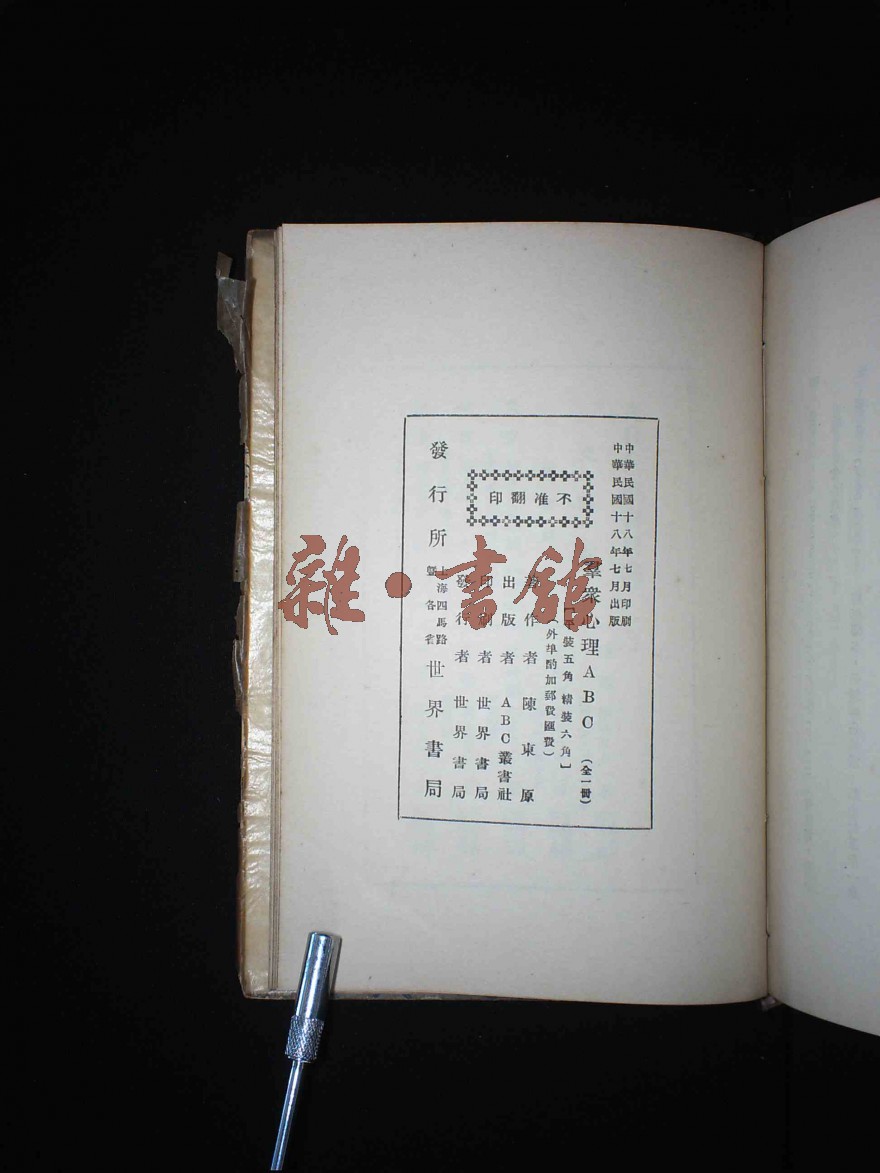 中華民國十八年七月印刷
中華民國十八年七月出版
羣衆心理ABC（全一冊）
［平裝五角 精裝六角］
（外埠酌加郵費匯費）
不准翻印
著作者 陳東原
出版者 ABC叢書社
印刷者 世界書局
發行者 世界書局
發行所 上海四馬路 暨各省 世界書局
雜·書館